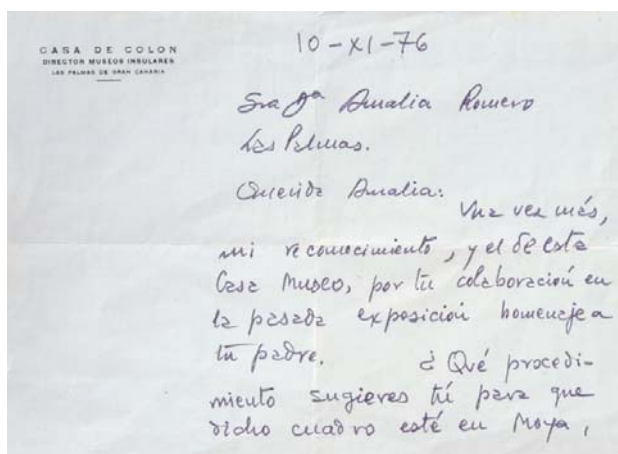 CASA DE COLON
DIRECTOR MUSEOS INSULARES
LAS PALMAS DE GRAN CANARIA
10-XI-76
Sra Dª Amalia Romero
Las Palmas.
Querida Amalia:
Una vez más,
mi reconocimiento, y el de esta
Casa Museo, por tu colaboración en
la pasada exposición homenaje a
tu padre. ¿Qué procedi-
miento sugieres tú para que
dicho cuadro esté en Moya,